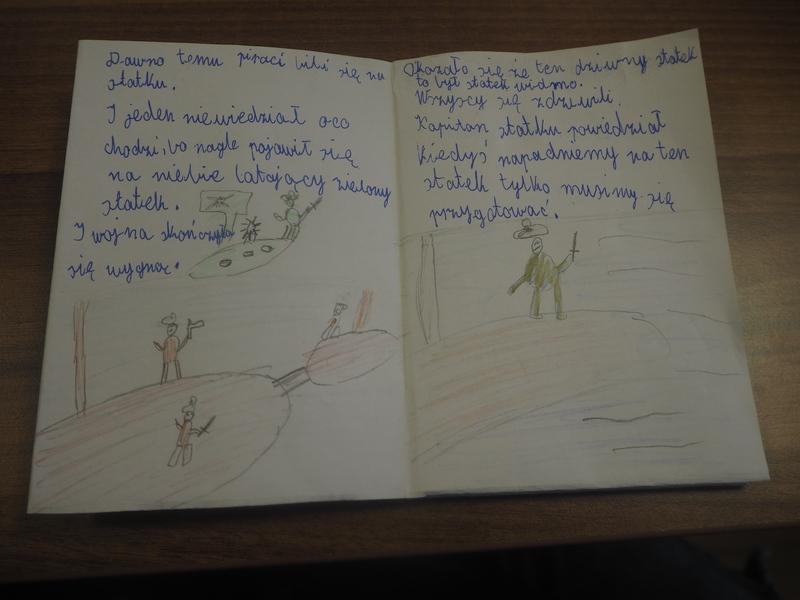 Dawno temu piraci bili się na
statku.
I jeden niewiedział oco
chodzi, bo nagle pojawił się
na niebie latający zielony
statek.
I wojna skończyła
się wygnac.
Okazało się że ten dziwny statek
to był statek widmo.
Wszyscy się zdziwili.
Kapitan statku powiedział
Kiedyś napadniemy na ten
statek tylko musimy się
przygotować.